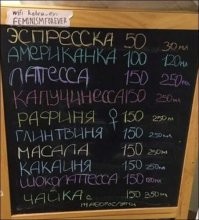 FEMINISM FOREVER
ЭСПРЕССКА 50 30мл
АМЕРИКАНКА 100 120мл
ЛАТЕССА 150 250мл
КАПУЧИНЕССА 150 250мл
РАФИНЯ ♀ 150 250мл
ГЛИНТВИНЯ 150 250мл
МАСАЛА 150 250мл
КАКАИНЯ 150 250мл
ШОКОЛАТЕССА 150 250мл
ЧАЙКА 150 350мл